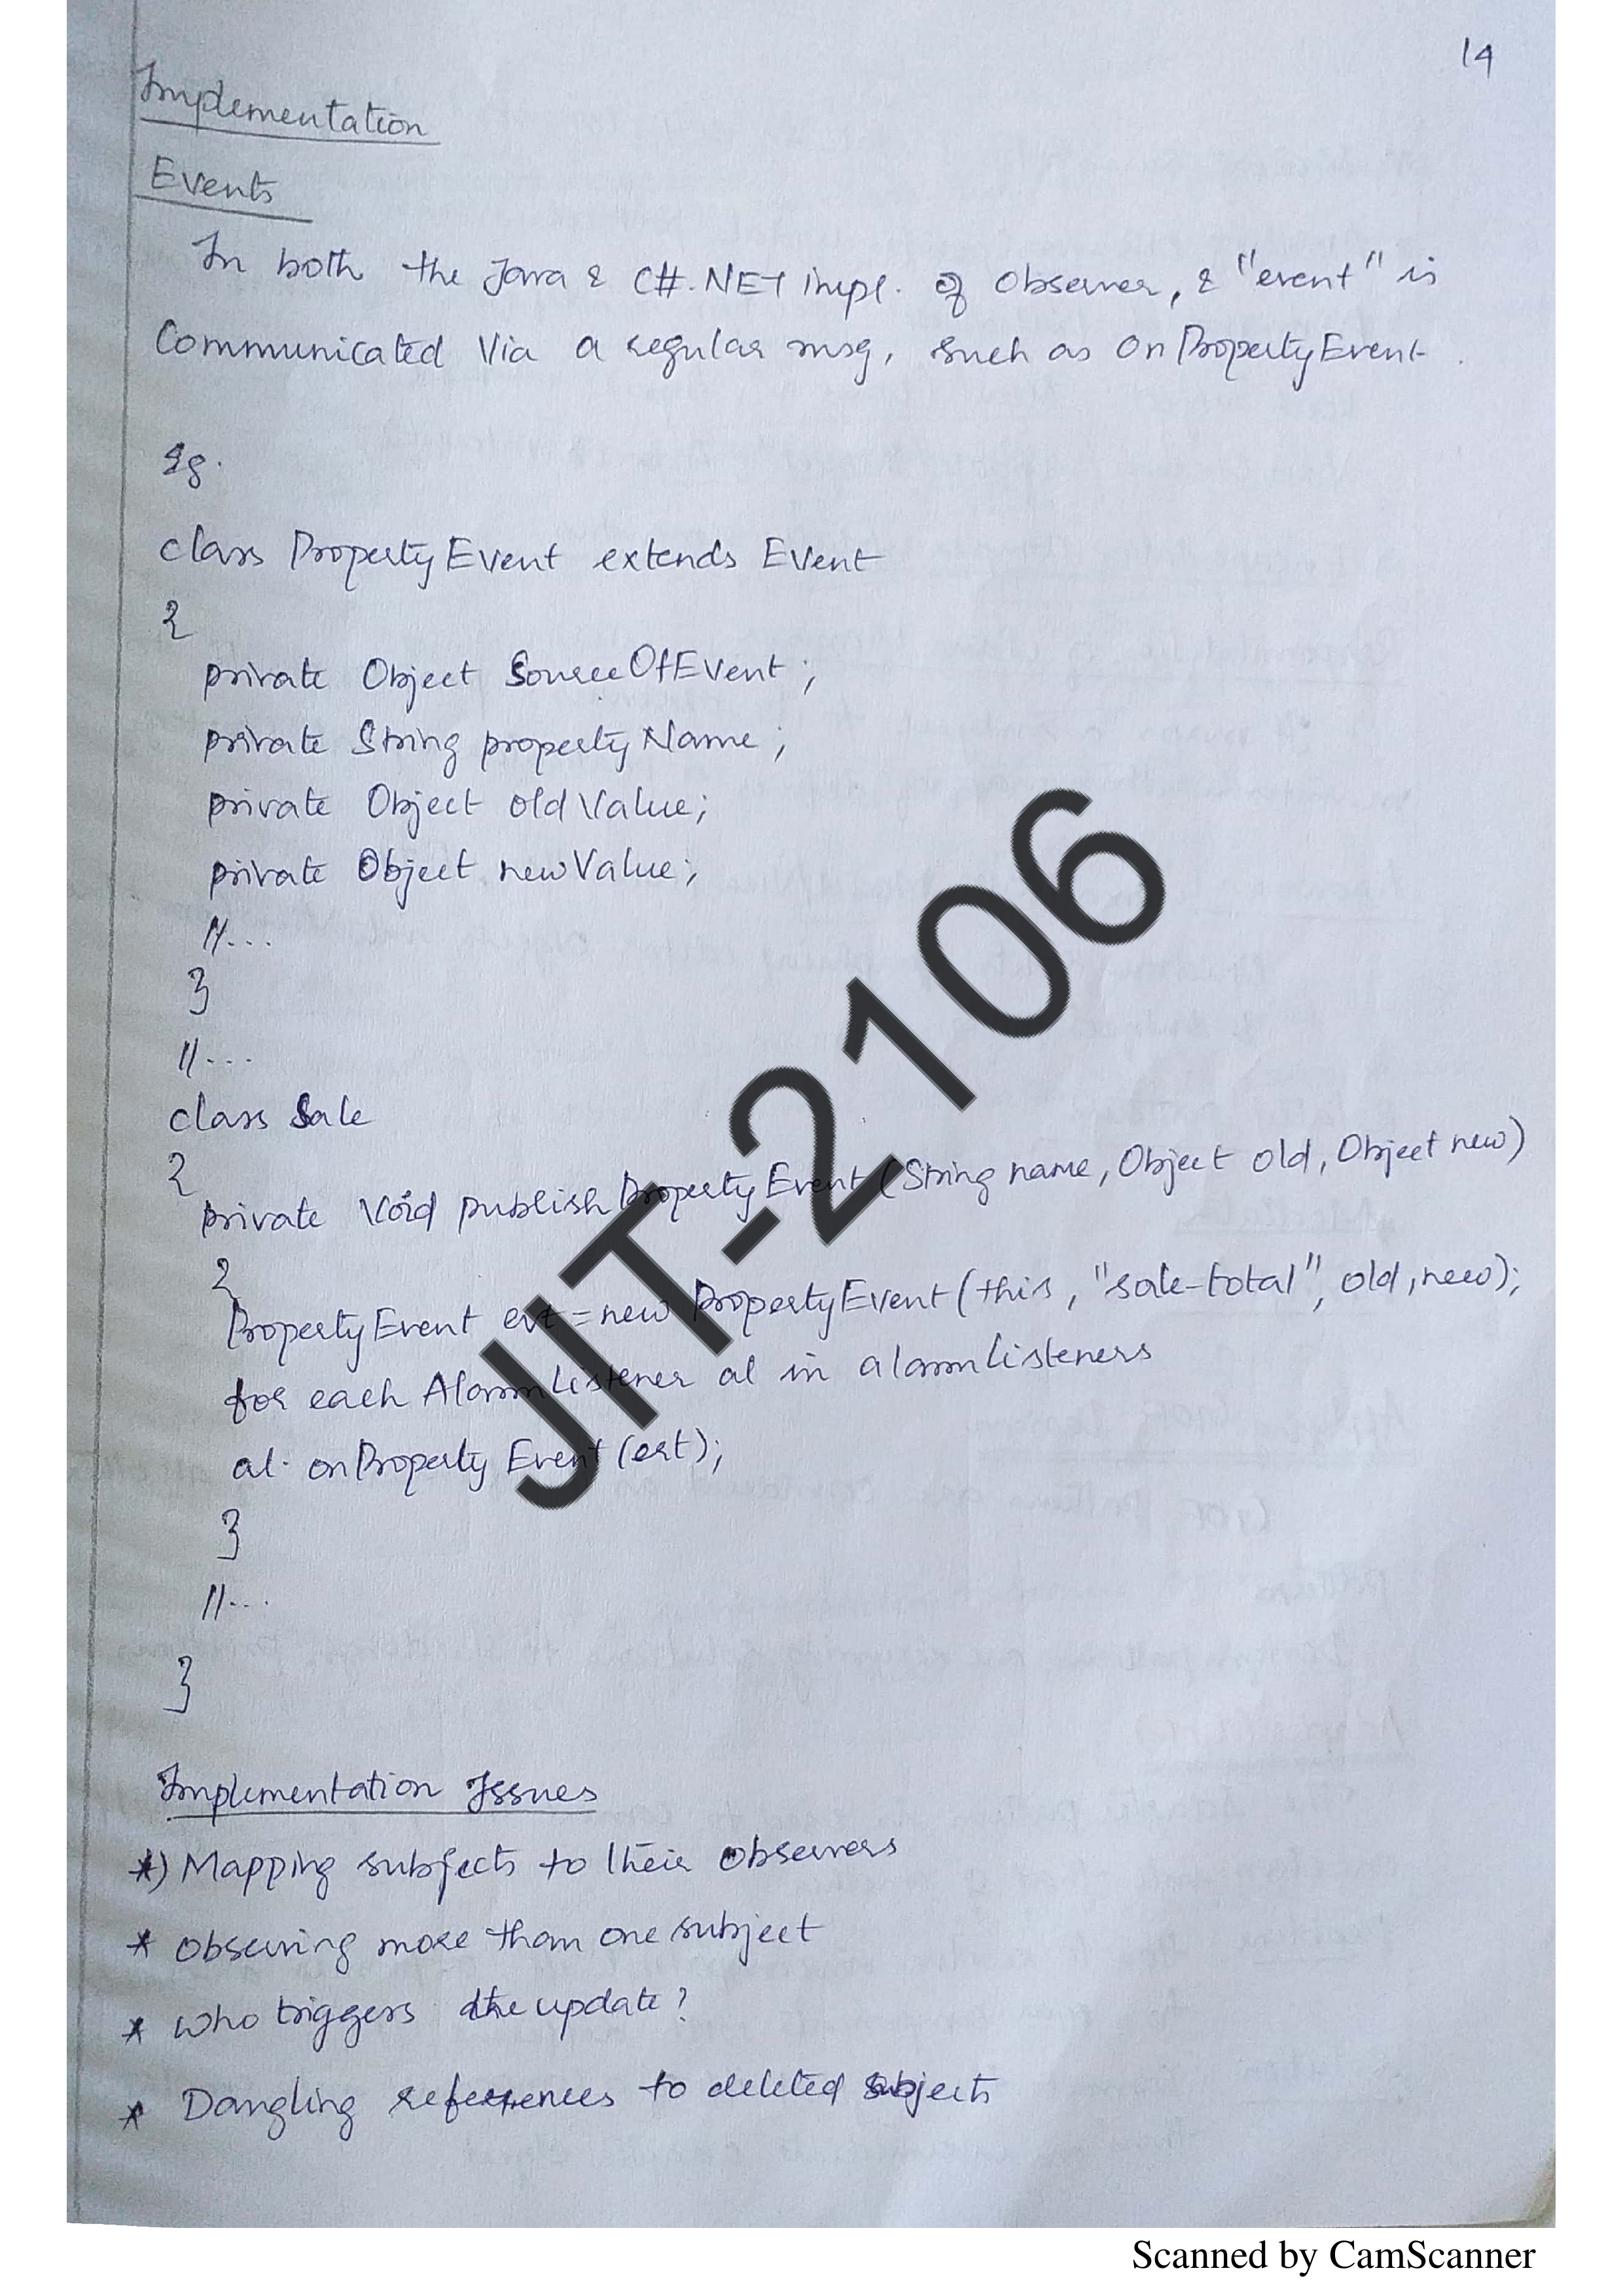 14
Implementation
Events
In both the Java & C#.NET impl. of Observer, & "event" is
Communicated Via a regular msg, such as OnPropertyEvent.
Eg.
class PropertyEvent extends Event
{
private Object SourceOfEvent;
private String propertyName;
private Object oldValue;
private Object newValue;
//...
}
//...
class Sale
{
private Void publishPropertyEvent(String name, Object old, Object new)
{
PropertyEvent evt = new PropertyEvent(this, "sale-total", old, new);
for each AlarmListener al in alarmListeners
al. onPropertyEvent(evt);
}
//...
}
Implementation Issues
*) Mapping subjects to their Observers
* Observing more than one subject
* Who triggers the update?
* Dangling references to deleted subjects
JIT-2106
Scanned by CamScanner